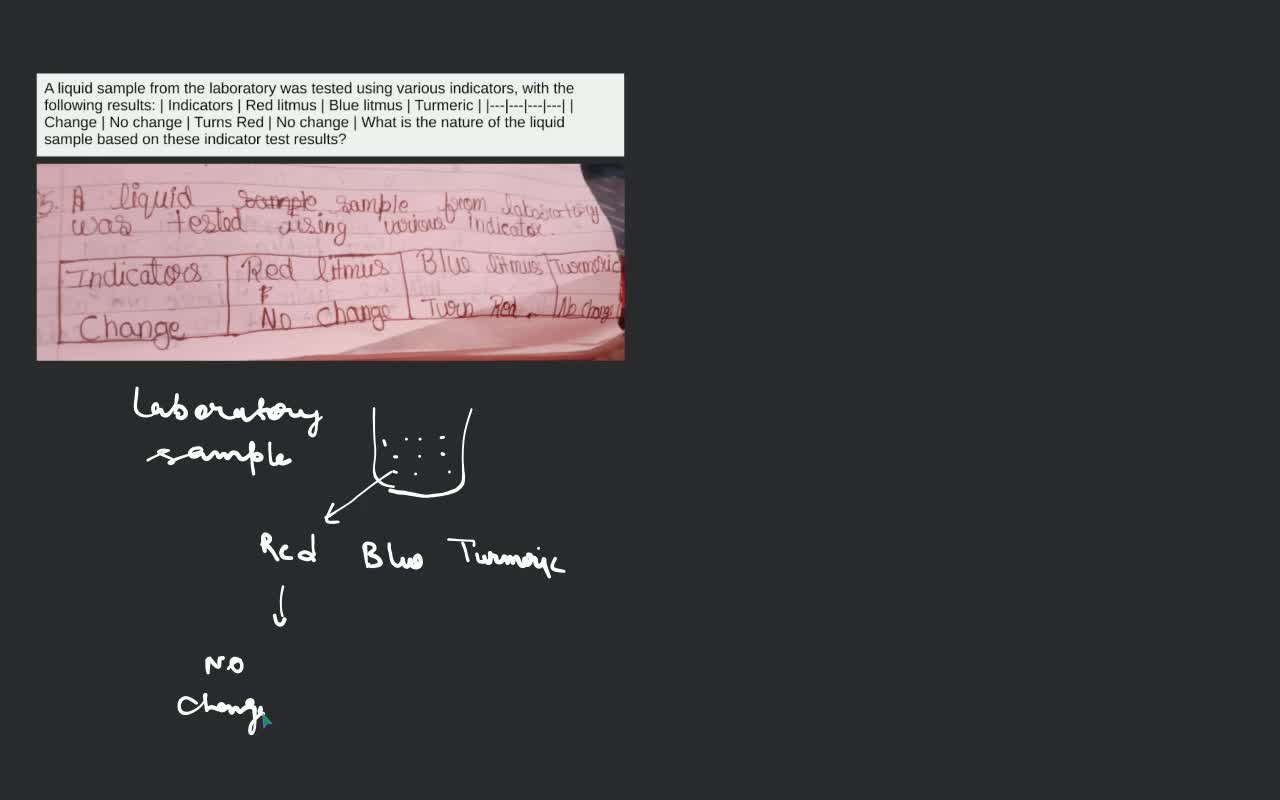 A liquid sample from the laboratory was tested using various indicators, with the
following results: | Indicators | Red litmus | Blue litmus | Turmeric | |---|---|---|---| |
Change | No change | Turns Red | No change | What is the nature of the liquid
sample based on these indicator test results?
5. A liquid sample sample from laboratory
was tested using various indicator.
Indicators Red litmus Blue litmus Turmeric
Change No Change Turn Red. No Change
Laboratory
sample
Red Blue Turmeric
No
Change